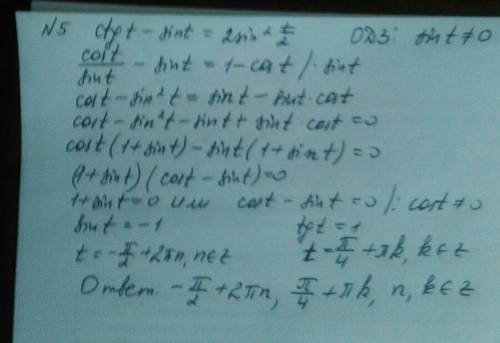 N5 ctgt - sint = 2sin² t/2 ОДЗ: sint ≠ 0
cost/sint - sint = 1 - cost /· sint
cost - sin²t = sint - sint · cost
cost - sin²t - sint + sint · cost = 0
cost(1 + sint) - sint(1 + sint) = 0
(1 + sint)(cost - sint) = 0
1 + sint = 0 или cost - sint = 0 /: cost ≠ 0
sint = -1 tgt = 1
t = -π/2 + 2πn, n ∈ z t = π/4 + πk, k ∈ z
Ответ: -π/2 + 2πn, π/4 + πk, n, k ∈ z